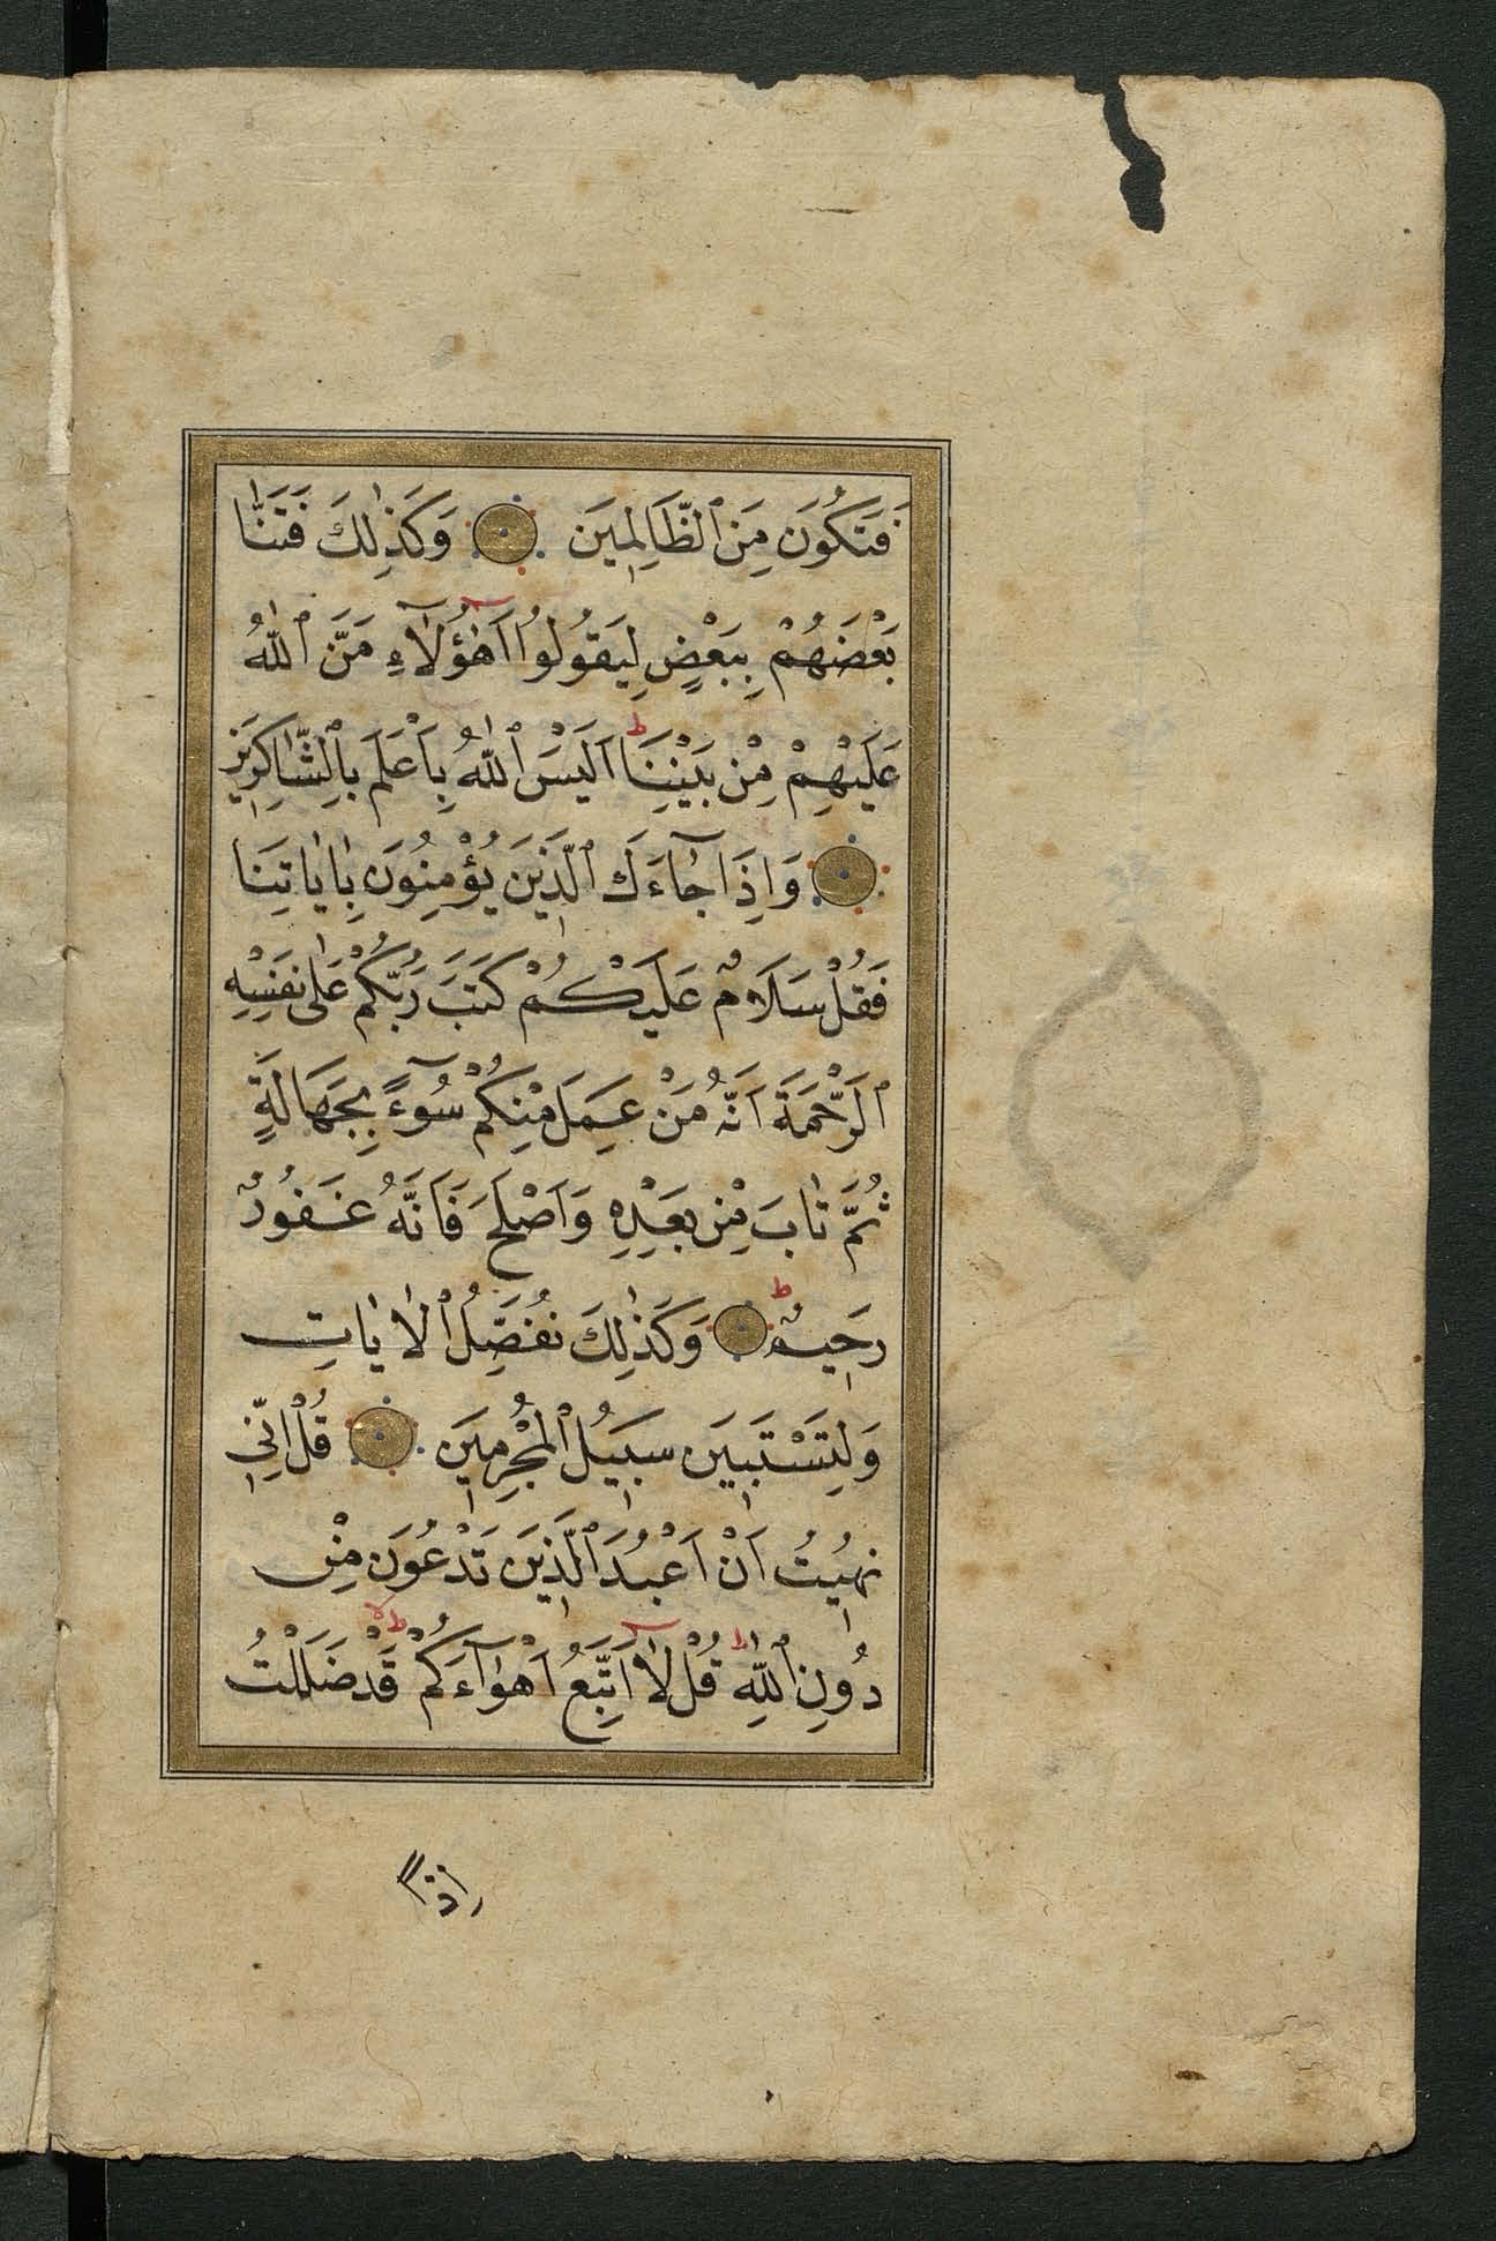 فَتَكُونَ مِنَ ٱلظَّالِمِينَ وَكَذٰلِكَ فَتَنَّا
بَعْضَهُمْ بِبَعْضٍ لِيَقُولُوا اَهٰٓؤُلَآءِ مَنَّ ٱللّٰهُ
عَلَيْهِمْ مِنْ بَيْنِنَا ط اَلَيْسَ ٱللّٰهُ بِاَعْلَمَ بِالشَّاكِرِينَ
وَاِذَا جَٓاءَكَ ٱلَّذِينَ يُؤْمِنُونَ بِاٰيَاتِنَا
فَقُلْ سَلَامٌ عَلَيْكُمْ كَتَبَ رَبُّكُمْ عَلٰى نَفْسِهِ
ٱلرَّحْمَةَ اَنَّهُ مَنْ عَمِلَ مِنْكُمْ سُوٓءً بِجَهَالَةٍ
ثُمَّ تَابَ مِنْ بَعْدِهِ وَاَصْلَحَ فَاَنَّهُ غَفُورٌ
رَحِيمٌ ط وَكَذٰلِكَ نُفَصِّلُ ٱلْاٰيَاتِ
وَلِتَسْتَبِينَ سَبِيلُ ٱلْمُجْرِمِينَ قُلْ اِنِّي
نُهِيتُ اَنْ اَعْبُدَ ٱلَّذِينَ تَدْعُونَ مِنْ
دُونِ ٱللّٰهِ ط قُلْ لَٓا اَتَّبِعُ اَهْوَٓاءَكُمْ لا قَدْ ضَلَلْتُ
اذا